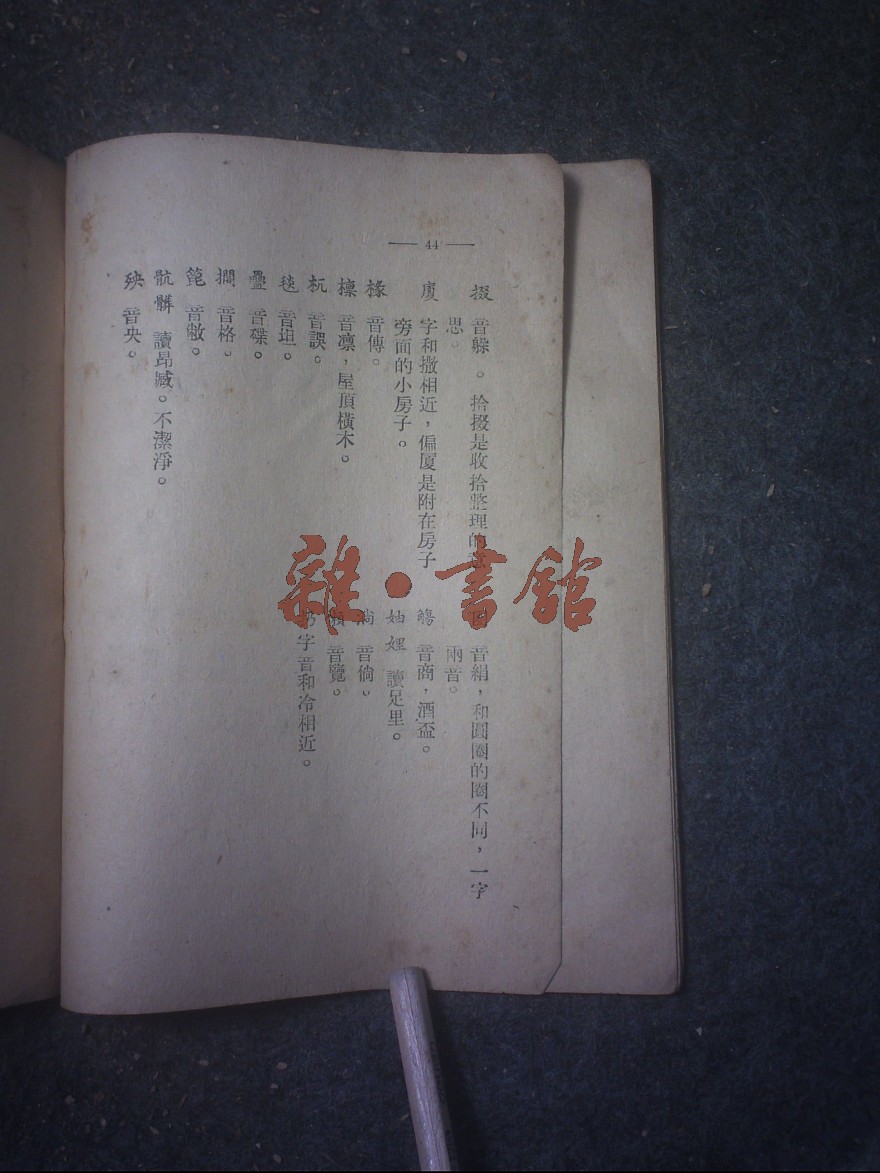 — 44 —
掇 音躲。拾掇是收拾整理的意
思。
廈 字和撒相近，偏厦是附在房子
旁面的小房子。
椽 音傳。
檁 音凛，屋頂橫木。
杬 音誤。
毯 音坦。
疊 音碟。
擱 音格。
音敝。
骯髒 讀昂臧。不潔淨。
殃 音央。
音絹，和圓圈的圈不同，一字
兩音。
觴 音商，酒盃。
妯娌 讀足里。
淌 音倘。
音覽。
字音和冷相近。
雜·書館